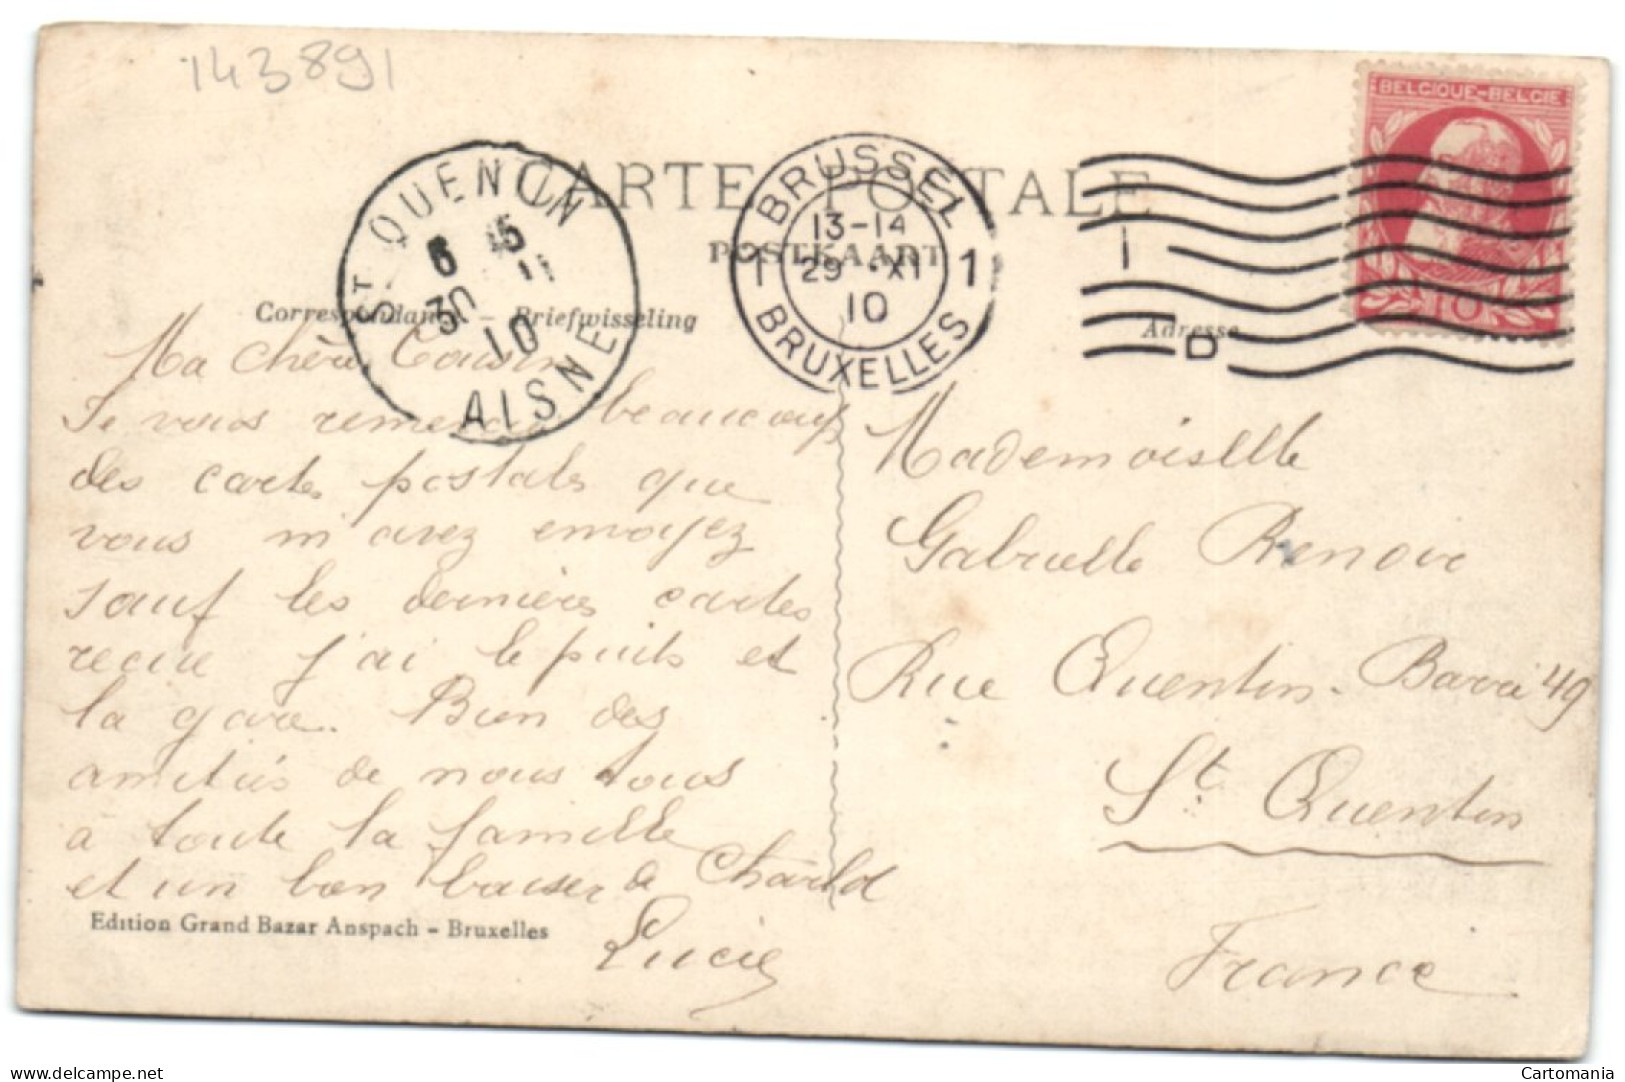 143891
BELGIQUE-BELGIE
10
CARTE POSTALE
POSTKAART
ST QUENTIN
6 15
30 11
10
AISNE
BRUSSEL
13-14
1 29 XI 1
10
BRUXELLES
Correspondance - Briefwisseling
Adresse
Ma chère Cousine
Je vous remercie beaucoup
des cartes postales que
vous m'avez envoyez
sauf les dernières cartes
recue j'ai le puits et
la gare. Bien des
amitiés de nous tous
à toute la famille
et un bon baiser de
Lucie
Edition Grand Bazar Anspach - Bruxelles
Mademoisellle
Gabrielle
Rue Quentin-Barré 49
St Quentin
France
delcampe.net
Cartomania